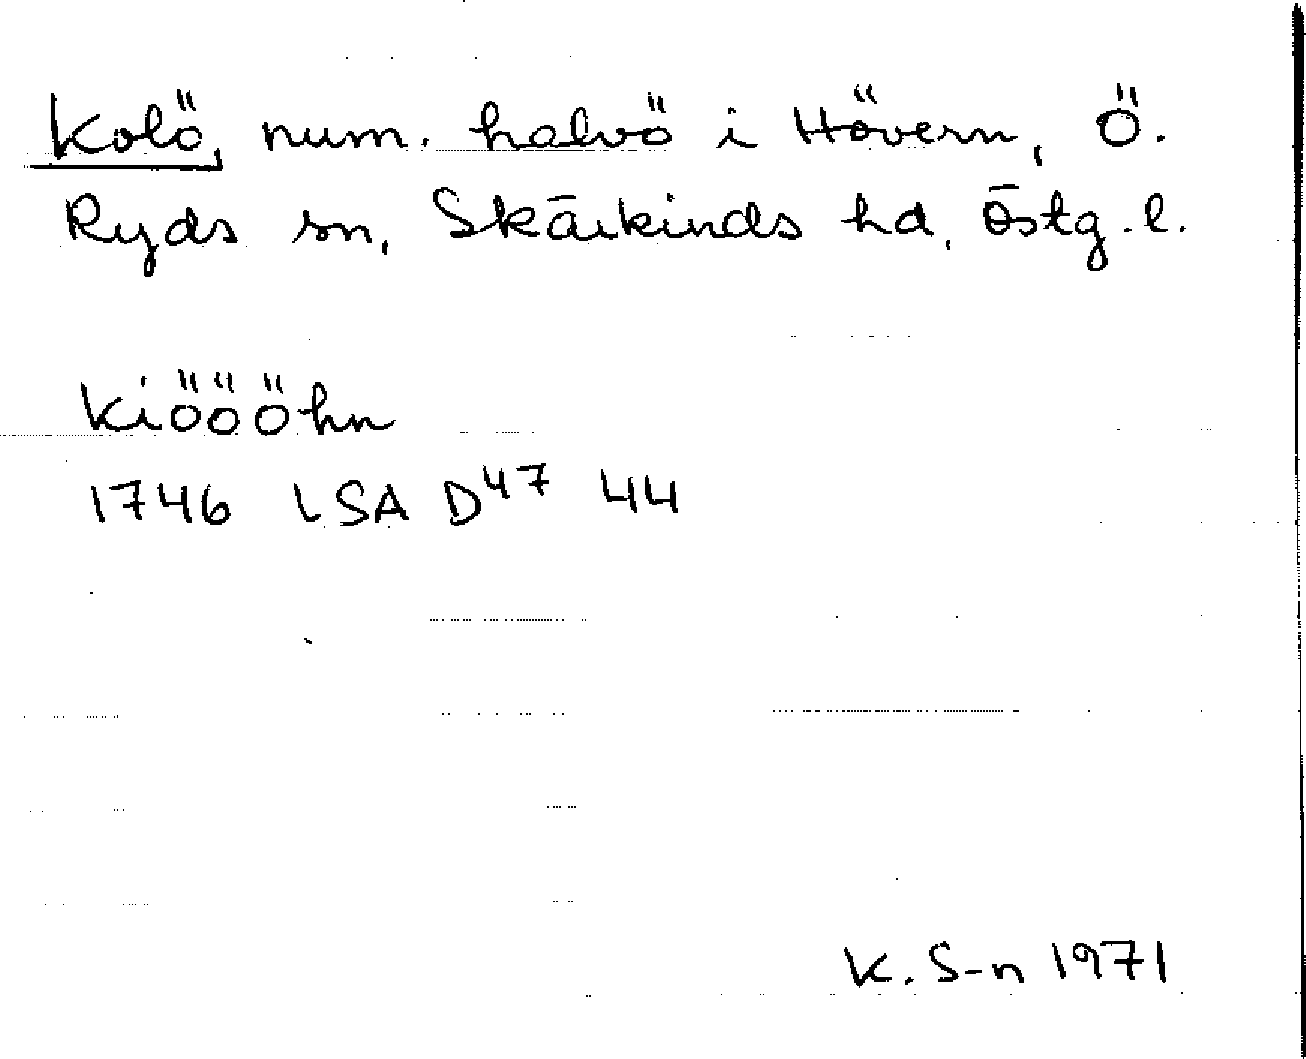 Kolö, num. halvö i Hövern, Ö.
Ryds sn, Skärkinds hd, Östg. l.
Kiöööhn
1746 LSA D47 44
K. S-n 1971